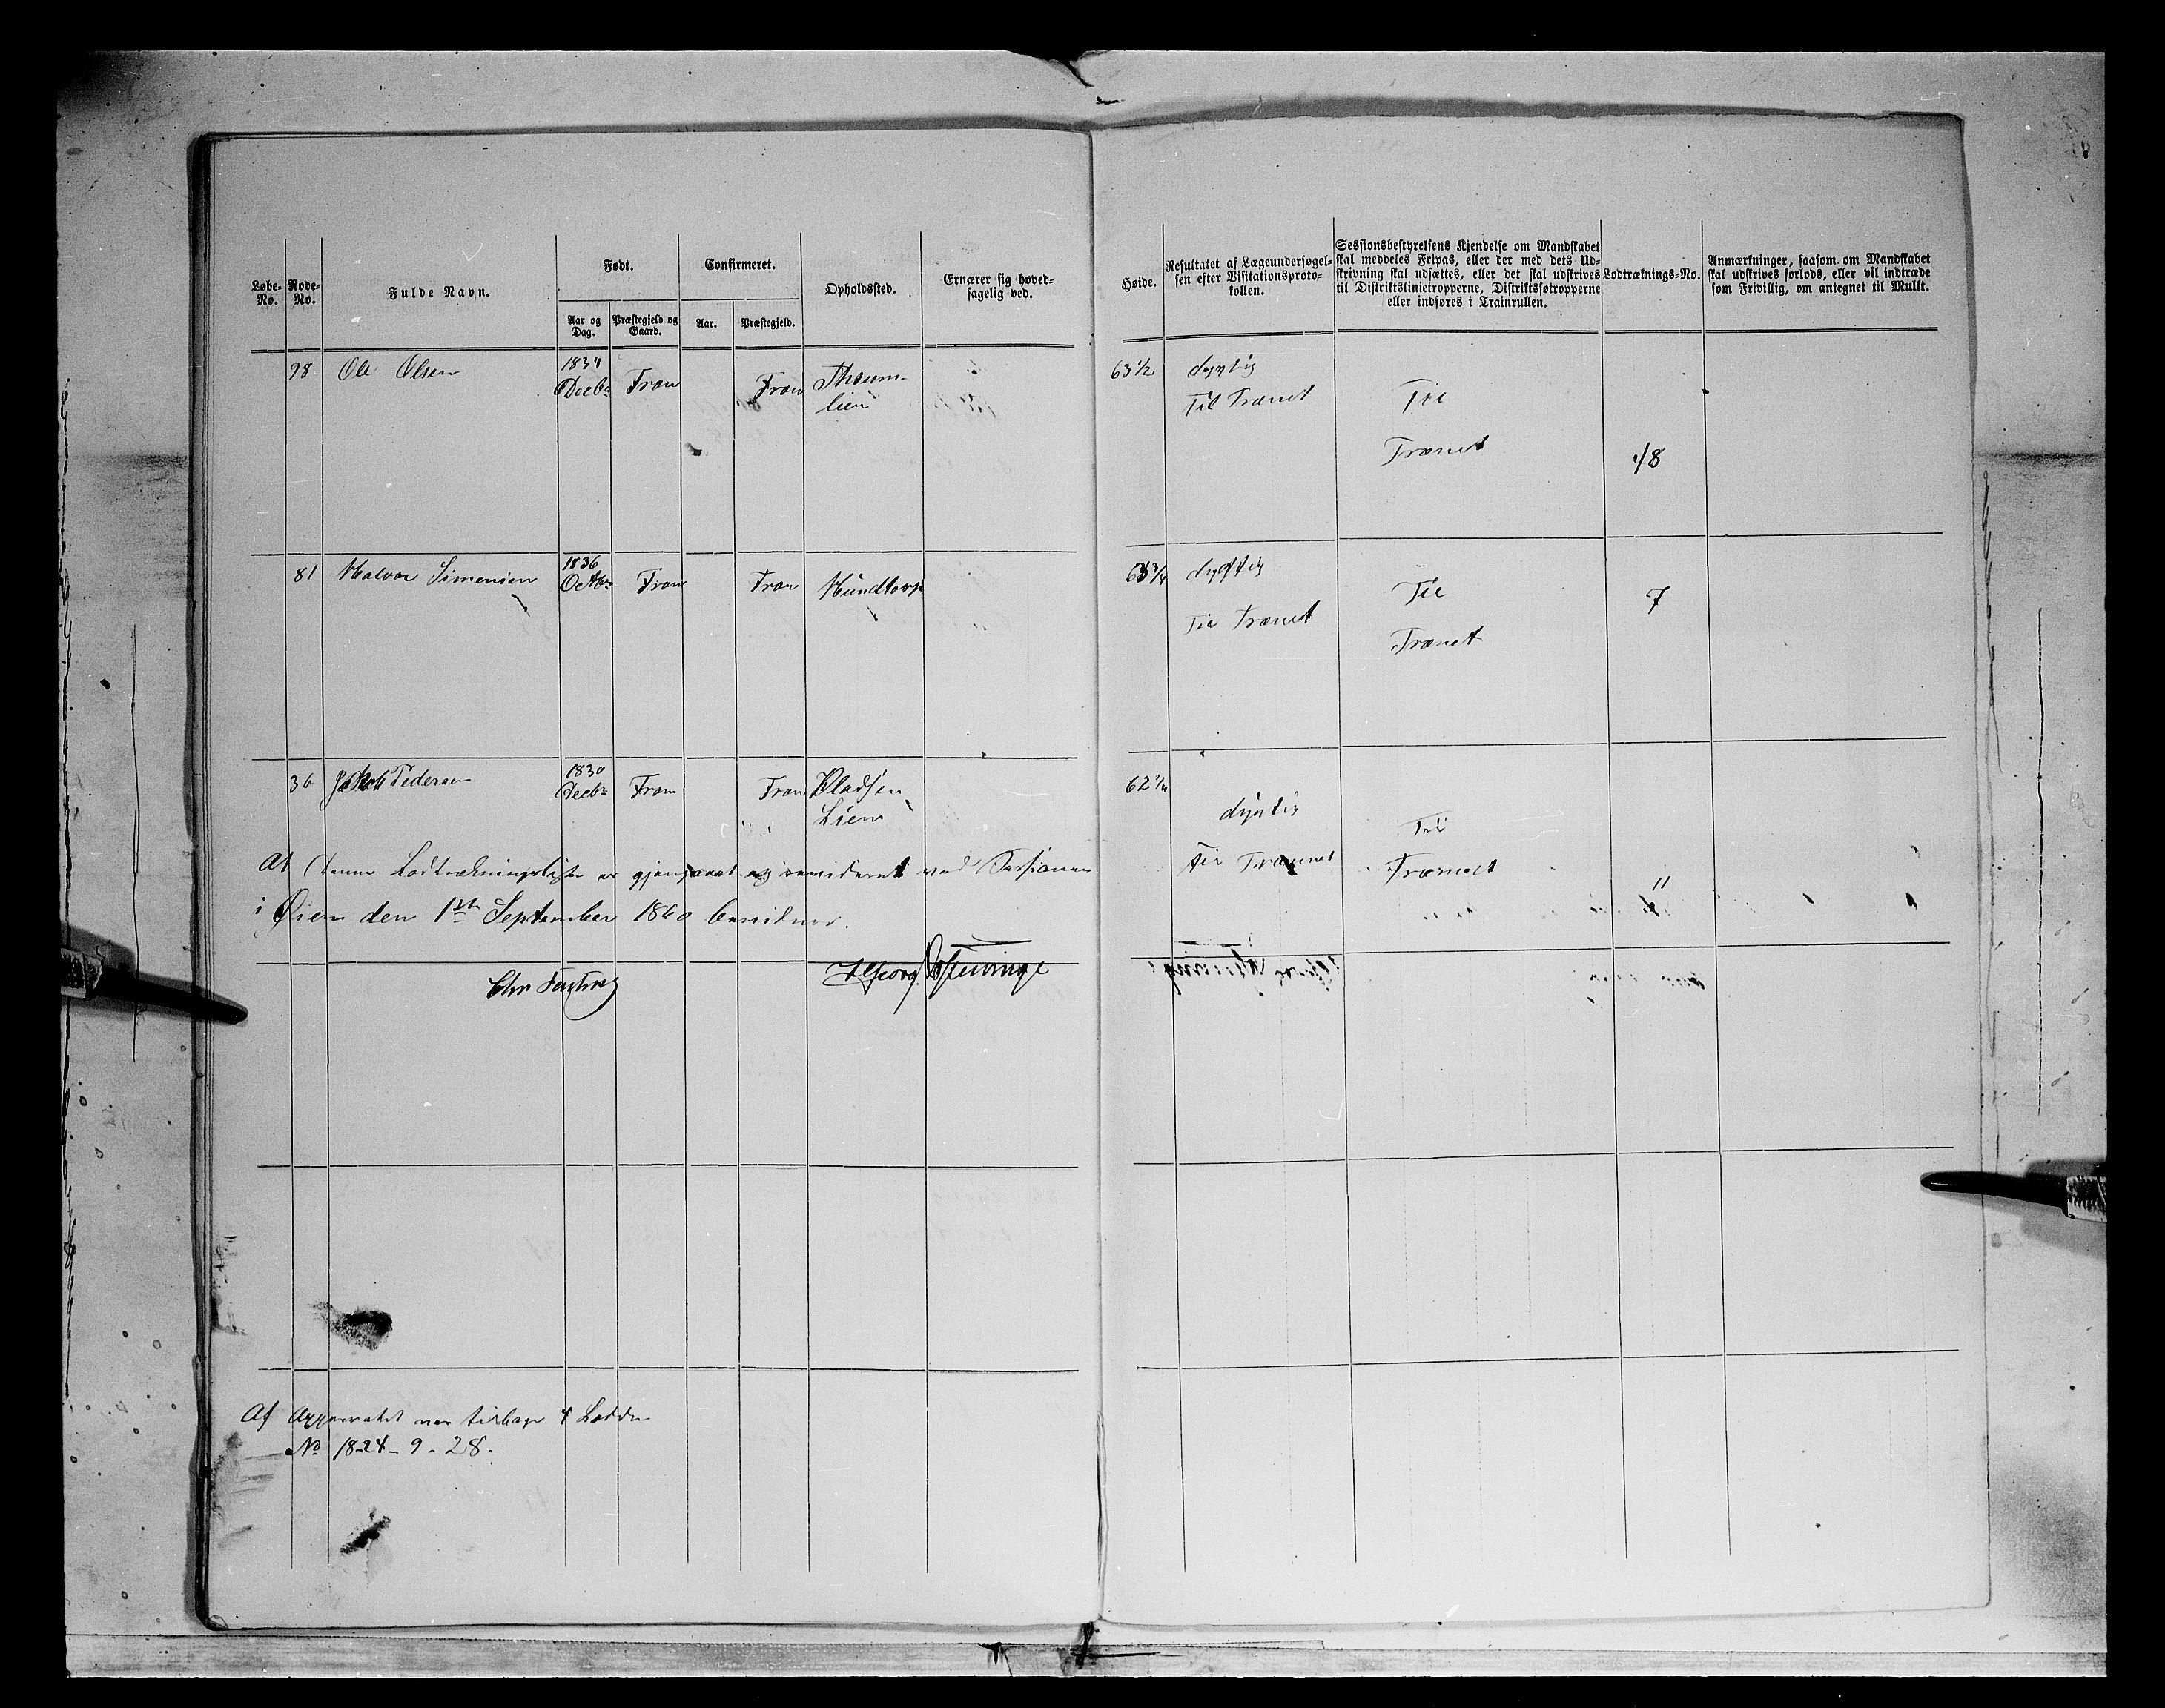 Løbe-No.
Rode-No.
Fulde Navn.
Født.
Aar og Dag.
Præstegjeld og Gaard.
Confirmeret.
Aar.
Præstegjeld.
Opholdssted.
Ernærer sig hoved-
sagelig ved.
Høide.
Resultatet af Lægeundersøgel-
sen efter Visitationsproto-
kollen.
Sessionsbestyrelsens Kjendelse om Mandskabet
skal meddeles Fripas, eller der med dets Ud-
skrivning skal udsættes, eller det skal udskrives
til Distriktslinietropperne, Distriktsføtropperne
eller indføres i Trainrullen.
Lodtræknings-No.
Anmærkninger, saasom om Mandskabet
skal udskrives forlods, eller vil indtræde
som Frivillig, om antegnet til Mulkt.
98 Ole Olsen 1834 Decbr Fron Fron Thoum-
lien
63 1/2 dygtig
Til Trænet
Til
Trænet
18
81 Halvor Simensen 1836 Octbr Fron Fron Hundtorp
63 3/4 dygtig
Til Trænet
Til
Trænet
7
36 Jakob Pedersen 1830 Decbr Fron Fron Pladsen
Lien
62 1/4
dygtig
til Trænet
Til
Trænet
11
At denne Lodtrækningsliste er gjengaaet og revideret ved Sessionen
i Øien den 1ste September 1860 bevidnes.
Af Apparatet var tilbage 4 Lodder
No 18-24-9-28.